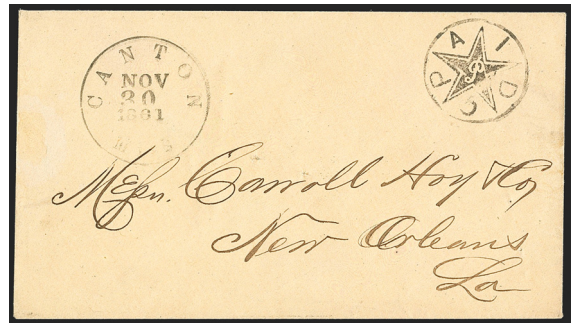 CANTON
NOV
30
1861
MS
PAID
AC
Messrs. Carroll Hoy & Co
New Orleans
La